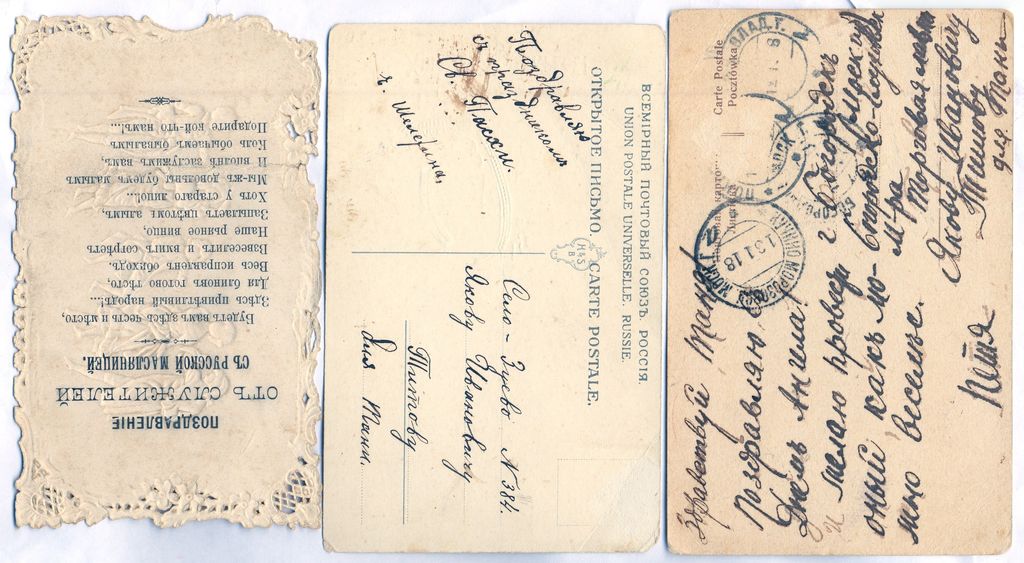 ПОЗДРАВЛЕНІЕ
ОТЪ СЛУЖИТЕЛЕЙ
СЪ РУССКОЙ МАСЛЯНИЦЕЙ.
Будетъ вамъ честь здѣсь и мѣсто,
Здѣсь привѣтливый народъ!...
Для блиновъ готово тѣсто,
Весь исправленъ обиходъ.
Взвеселитъ и вмигъ согрѣетъ
Наше рьяное винцо,
Запылаетъ цвѣтомъ алымъ
Хоть у стараго лицо!...
Мы-жъ довольны будемъ малымъ
И вполнѣ заслужимъ вамъ,
Коль обычаемъ бывалымъ
Подарите кой-что намъ!...
ВСЕМІРНЫЙ ПОЧТОВЫЙ СОЮЗЪ. РОССІЯ.
UNION POSTALE UNIVERSELLE. RUSSIE.
ОТКРЫТОЕ ПИСЬМО. CARTE POSTALE.
H&S
B
Поздравляю
съ праздникомъ
Св. Пасхи.
Село-Зуево №384.
Якову Ивановичу
Титову
Для Тани.
Carte Postale
Pocztówka
Здравствуй Таня
Поздравляю съ
Днемъ Ангела
и желаю провести
оный какъ мо-
жно веселье.
Петя
г. Богородскъ
Московск
М-ра
Торговая
Якову Ивановичу
Титову
для Тани
1 3 1 18